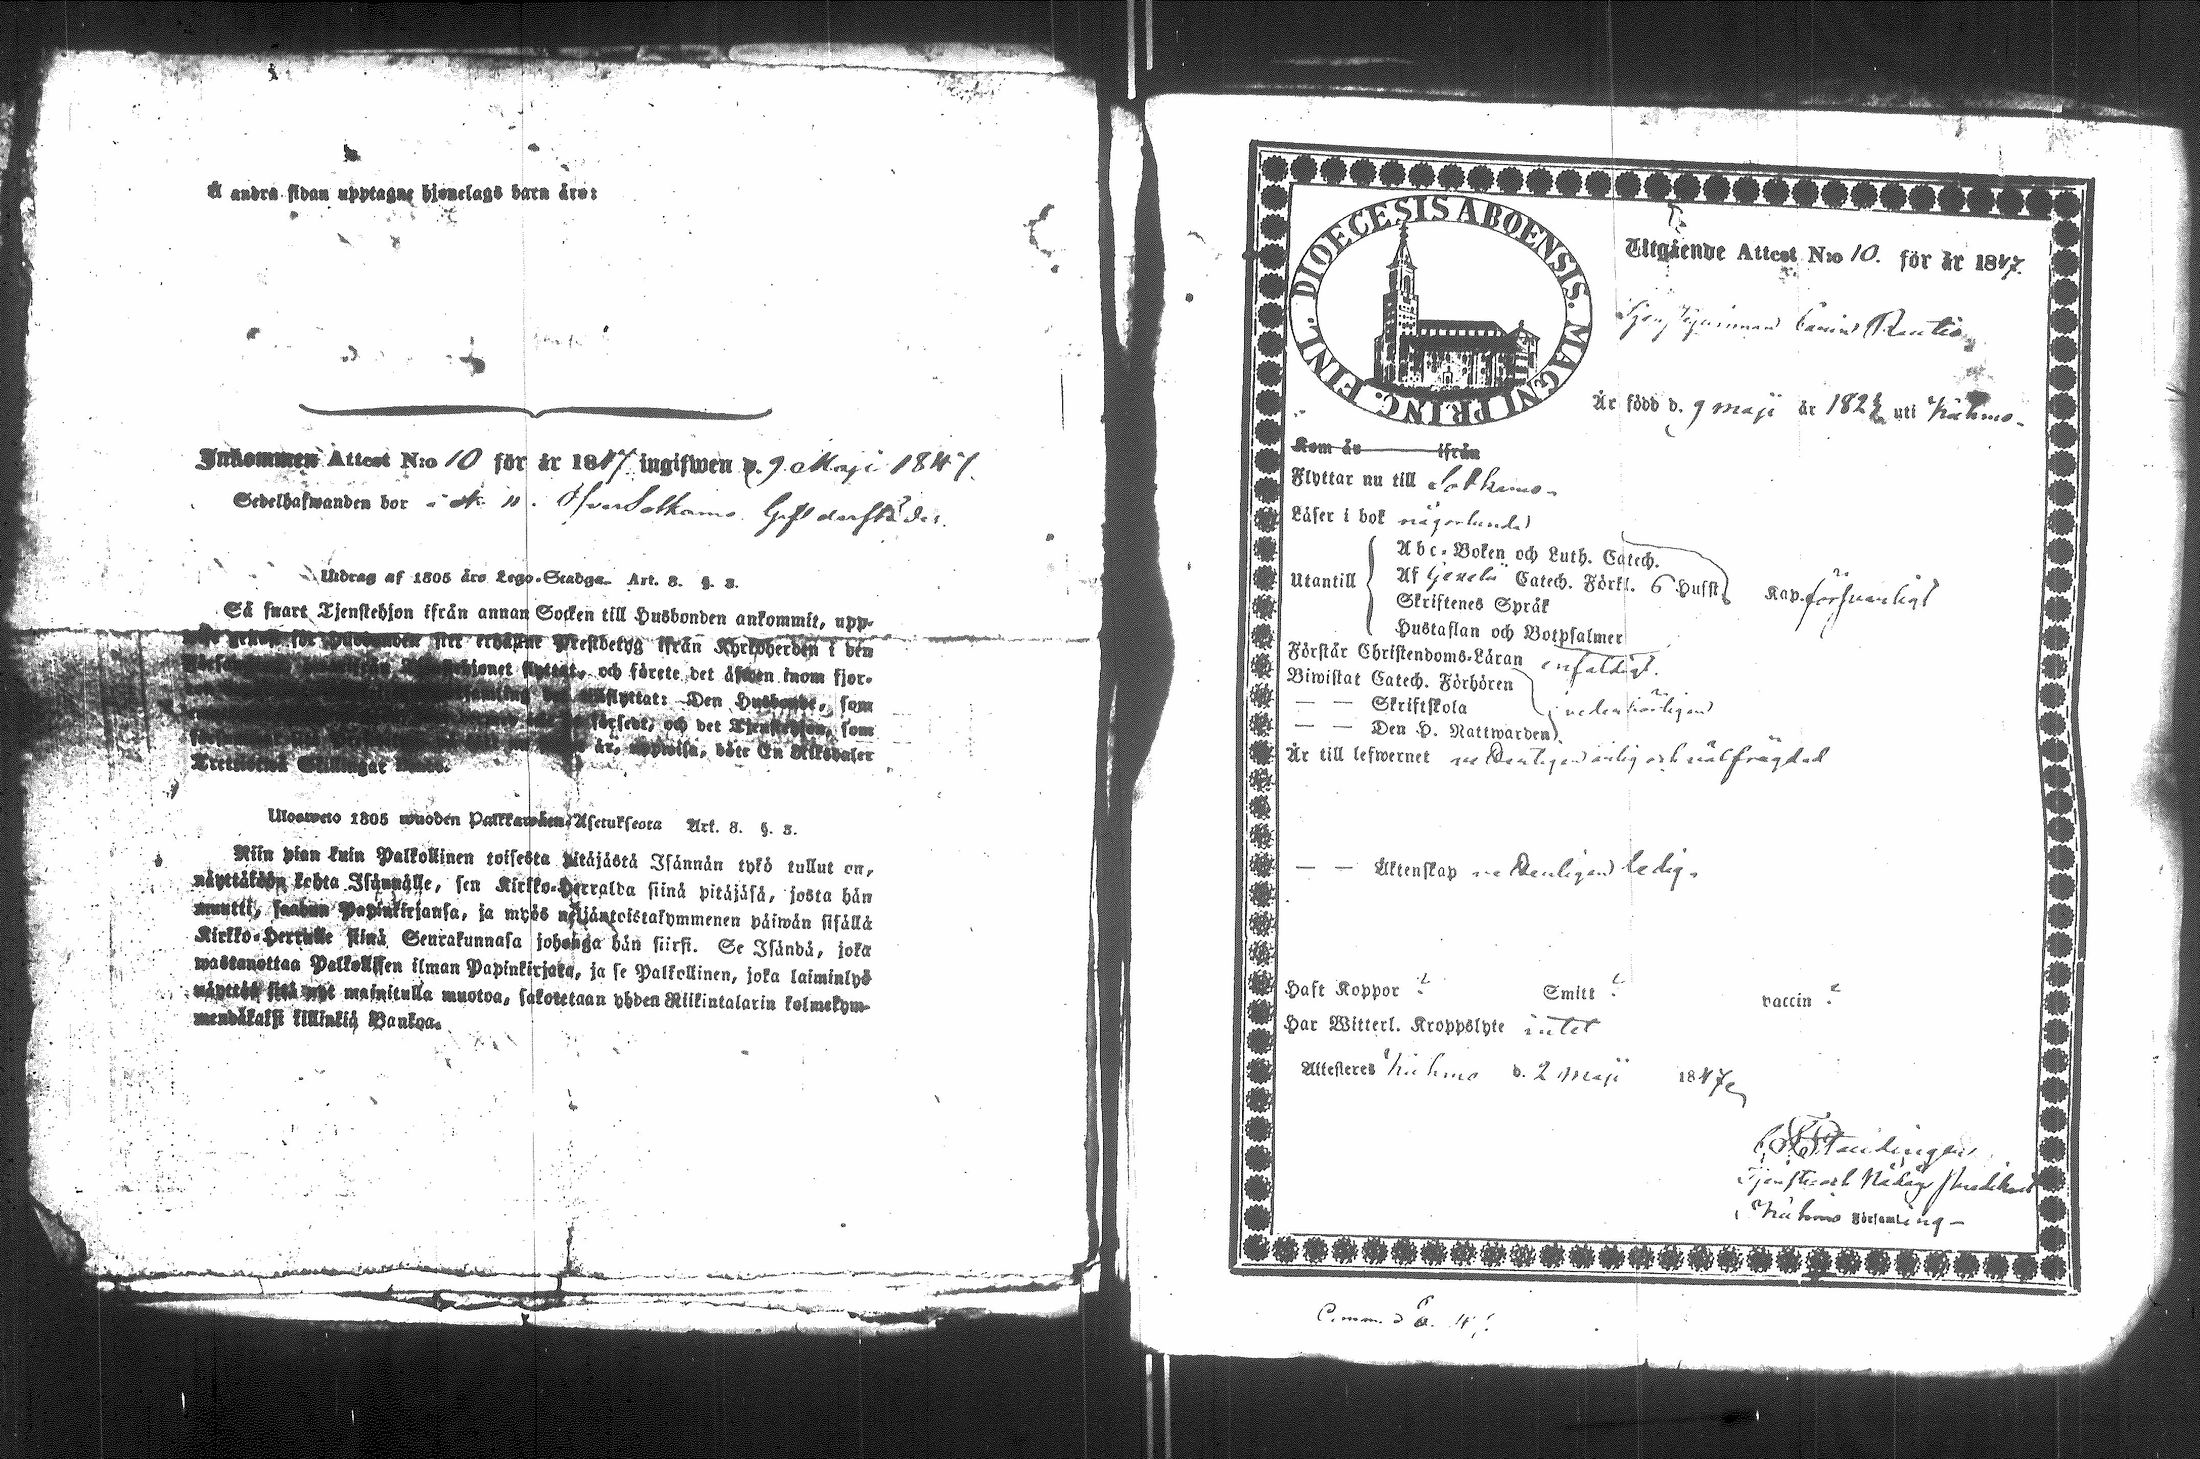 Å andra sidan upptagne hjonelags barn äro:
Inkommen Attest N:o 10 för år 1847 ingifwen d. 9 Maji 1847.
Sedelhafwanden bor i N:o 11. Öfver Sotkamo
Utdrag af 1805 års Lego-Stadga. Art. 3. §. 3.
Så snart Tjenstehjon ifrån annan Socken till Husbonden ankommit, upp-
Husbonden sitt erhållne Prestbetyg ifrån Kyrkoherden i den
flyttat, och förete det äfwen inom fjor-
inflyttat: Den Husbonde, som
försedt, och det Tjenstehjon, som
år, uppwisa, böte En Riksdaler
Trettiotwå Skillingar Banco.
Ulosweto 1805 wuoden Palkkawäen-Asetuksesta Art. 3. §. 3.
Niin pian kuin Palkollinen toisesta pitäjästä Isännän tykö tullut on,
näyttäköön kohta Isännälle, sen Kirkko-Herralda siinä pitäjäsä, josta hän
muutti, saadun Papinkirjansa, ja myös neljäntoistakymmenen päiwän sisällä
Kirkko-Herralle siinä Seurakunnasa johonga hän siirsi. Se Isändä, joka
wastanottaa Palkollisen ilman Papinkirjata, ja se Palkollinen, joka laiminlyö
näyttää sitä nyt mainitulla muotoa, sakotetaan yhden Riikintalarin kolmekym-
mendäkaksi killinkiä Bankoa.
DIOECESIS ABOENSIS. MAGNI PRINC. FINL.
Utgående Attest N:o 10. för år 1847.
Tjenstqvinnan Carin Rautio
Är född d. 9 maji år 182 uti Kuhmo.
Kom år ifrån
Flyttar nu till Sotkamo.
Läser i bok någorlunda
Utantill
Abc-Boken och Luth. Catech.
Af Gezelii Catech. Förkl. 6 Hufst. Kap. försvarligt
Skriftenes Språk
Hustaflan och Botpsalmer
Förstår Christendoms-Läran enfaldigt.
Biwistat Catech. Förhören
— — Skriftskola vederbörligen
— — Den H. Nattwarden
Är till lefwernet veterligen ärlig och välfrägdad
— — Äktenskap veterligen ledig.
Haft Koppor ? Smitt ? vaccin ?
Har Witterl. Kroppslyte intet
Attesteres Kuhmo d. 2 maji 1847
Kuhmo Församling